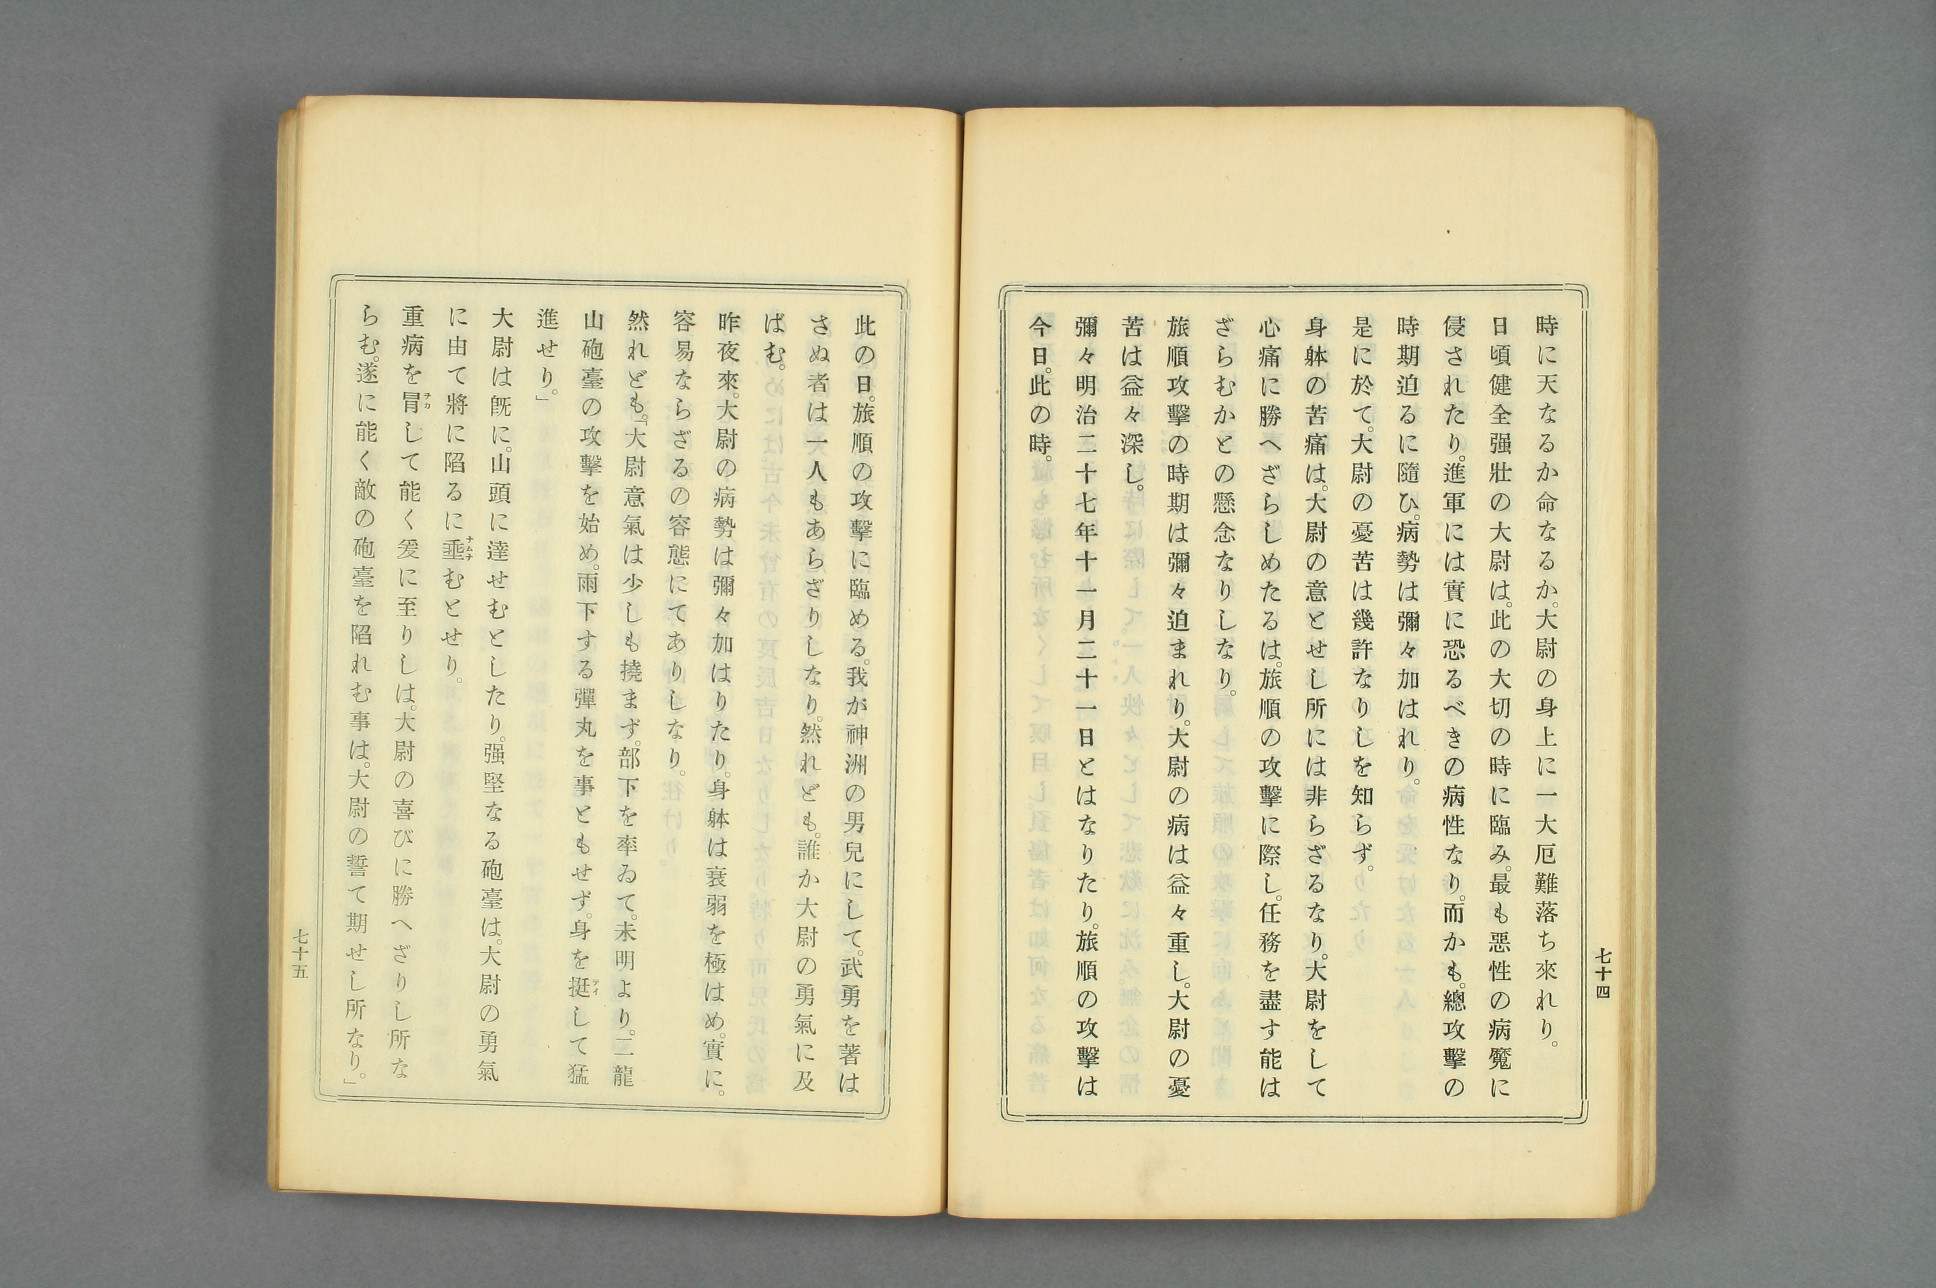 時に天なるか命なるか。大尉の身上に一大厄難落ち來れり。
日頃健全强壯の大尉は。此の大切の時に臨み。最も惡性の病魔に
侵されたり。進軍には實に恐るべきの病性なり。而かも。總攻擊の
時期迫るに隨ひ。病勢は彌々加はれり。
是に於て。大尉の憂苦は幾許なりしを知らず。
身躰の苦痛は。大尉の意とせし所には非らざるなり。大尉をして
心痛に勝へざらしめたるは。旅順の攻擊に。際し。任務を盡す能は
ざらむかとの懸念なりしなり。
旅順攻擊の時期は彌々迫まれり。大尉の病は益々重し。大尉の憂
苦は益々深し。
彌々明治二十七年十一月二十一日とはなりたり。旅順の攻擊は
今日。此の時。
七十四
此の日。旅順の攻擊に臨める。我が神洲の男兒にして。武勇を著は
さぬ者は一人もあらざりしなり。然れども。誰か大尉の勇氣に及
ばむ。
昨夜來。大尉の病勢は彌々加はりたり。身躰は衰弱を極はめ。實に。
容易ならざるの容態にてありしなり。
然れども。「大尉意氣は少しも撓まず。部下を率ゐて。未明より。二龍
山砲臺の攻擊を始め。雨下する彈丸を事ともせず。身を挺して猛
進せり。」
大尉は旣に。山頭に達せむとしたり。强堅なる砲臺は。大尉の勇氣
に由て將に陷るに埀むとせり。
重病を冒して能く爰に至りしは。大尉の喜びに勝へざりし所な
らむ。遂に能く敵の砲臺を陷れむ事は。大尉の誓て期せし所なり。」
七十五